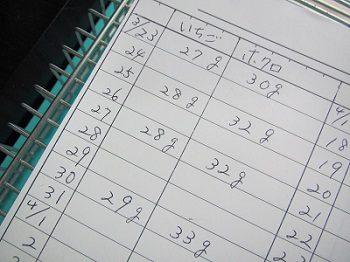 いちご ホクロ
3/23 27g 30g
24 18
25 28g 32g 19
26 20
27 28g 32g 21
28 22
29
30 29g 33g
31
4/1
2